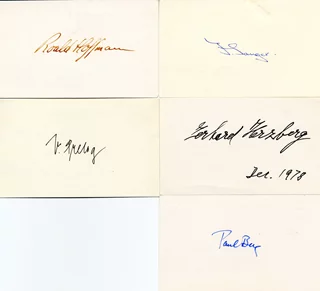 Roald Hoffmann
F. Sanger
V. Prelog
Gerhard Herzberg
Dec. 1978
Paul Berg